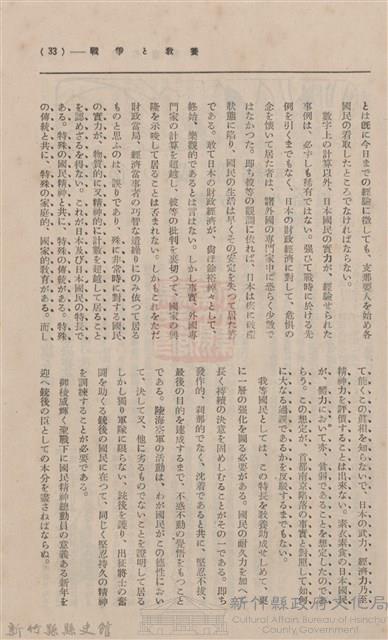 (33)——戰爭と教養
とは既に今日までの經驗に徴しても、支那要人を始め各
國民の看取したところでなければならない。
數字上の計算以外、日本國民の實力が、經驗せられた
事例は、必ずしも稀有ではない。强ひて戰時に於ける先
例を引くまでもなく、日本の財政經濟に對して、危惧の
念を懷いて居た者は、諸外國の專門家中に恐らく少數で
はなかつた。即ち彼等の觀測に依れば、日本は疾に破產
狀態に陷り、國民の生活は早くその安定を失つて居た筈
である。敢て日本の財政經濟が、尙ほ餘裕綽々として、
終始、樂觀的であるとは言はない。しかも事實、外國專
門家の計算を超越し、彼等の批判を裏切つて、國家の興
隆を示現して居ることは否まれない。しかもこれをただ
財政當局、經濟當事者の巧智な遣繰りにのみ依つて居る
ものと思ふのは、誤りであり、殊に非常時に對する國民
の實力が、物質的に又精神的に計數を超越して居ること
を認めざるを得ない。これが日本及び日本國民の特長で
ある。特殊の國民精神と共に、特殊の傳統がある。特殊
の傳統と共に、特殊の家庭的、國家的教育がある。而し
て能くこの眞相を知らないで、日本の武力、經濟力乃至
精神力を評價することは出來ない。素衣素食の日本國民
が、實力において亦、貧弱であることを想定したのであ
らう。この想定が、首都南京陷落の事實と對照して如何
に大なる過誤であるかを反駁するまでもない。
我等國民としては、この特長を教養助成せしめて、更
に一層の强化を圖る必要がある。國民の耐久力を加へて
長く持續の決意を固めしむることがその一である。即ち
發作的、刹那的でなく、沈着であると共に、堅忍不拔、
最後の目的を達成するまで、不惑不動の覺悟をもつこと
である。陸海空軍の活動は、わが國民がこの德性におい
て、決して又、他に劣るものでないことを證明して居る
しかし獨り軍隊に限らない、銃後を護り、出征將士の奮
鬪を助くる銃後の國民に在つて、同じく堅忍持久の精神
を訓練することが必要である。
御稜威輝く聖戰下に國民精神總動員の意義ある新年を
迎へ銃後の臣としての本分を盡さねばならぬ。
新竹縣政府文化局
Cultural Affairs Bureau of Hsinchu
County Government
新竹縣縣史館